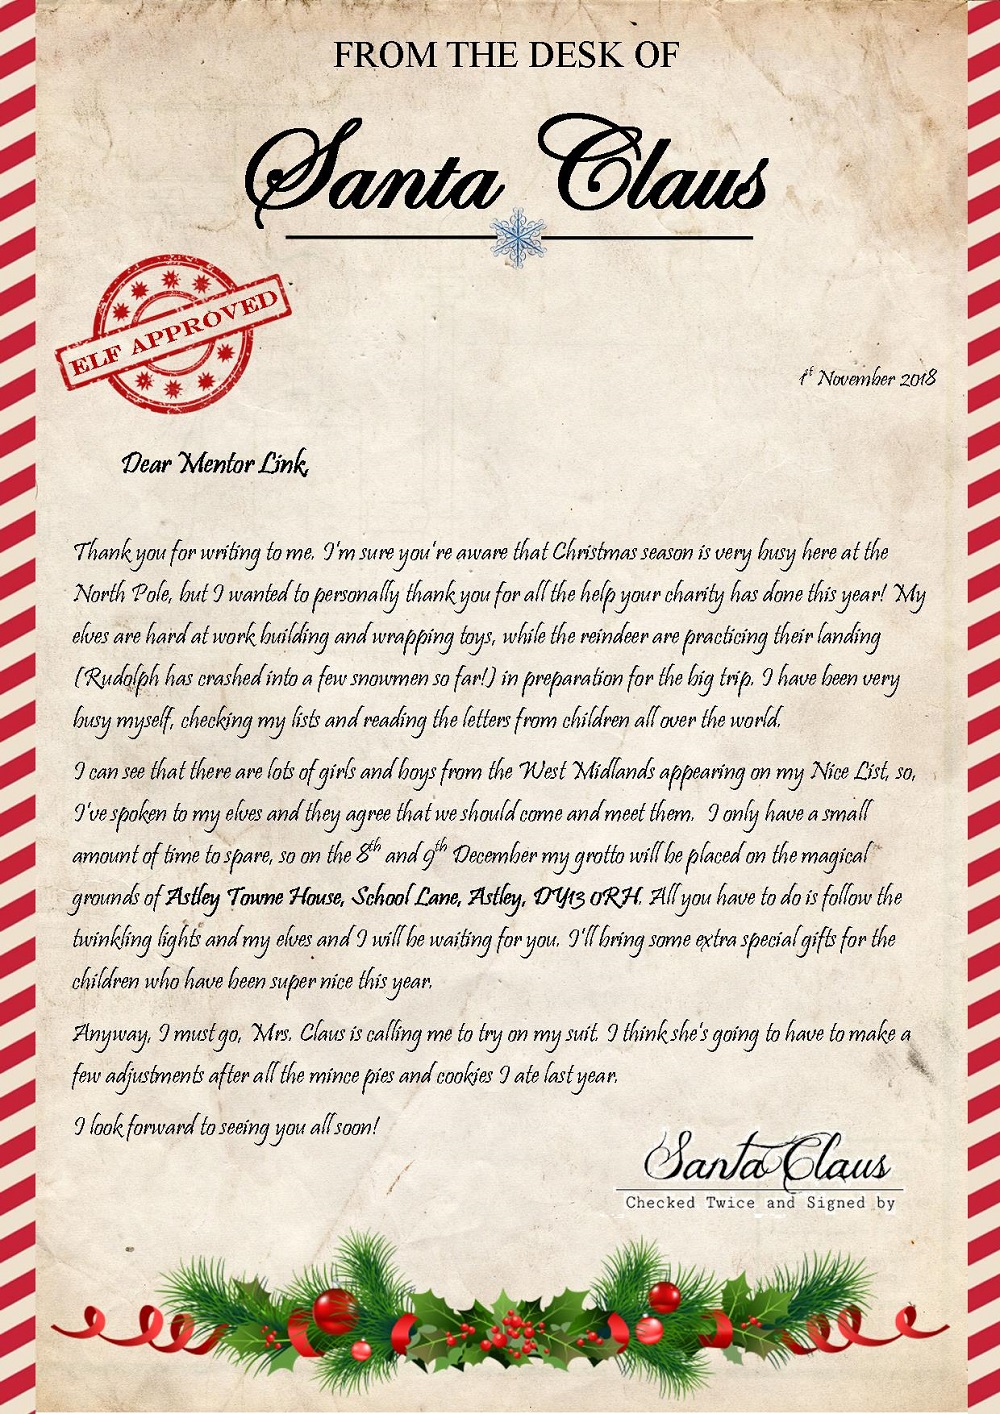 FROM THE DESK OF
Santa Claus
ELF APPROVED
1st November 2018
Dear Mentor Link,
Thank you for writing to me. I'm sure you're aware that Christmas season is very busy here at the
North Pole, but I wanted to personally thank you for all the help your charity has done this year! My
elves are hard at work building and wrapping toys, while the reindeer are practicing their landing
(Rudolph has crashed into a few snowmen so far!) in preparation for the big trip. I have been very
busy myself, checking my lists and reading the letters from children all over the world.
I can see that there are lots of girls and boys from the West Midlands appearing on my Nice List, so,
I've spoken to my elves and they agree that we should come and meet them. I only have a small
amount of time to spare, so on the 8th and 9th December my grotto will be placed on the magical
grounds of Astley Towne House, School Lane, Astley, DY13 0RH. All you have to do is follow the
twinkling lights and my elves and I will be waiting for you. I'll bring some extra special gifts for the
children who have been super nice this year.
Anyway, I must go, Mrs. Claus is calling me to try on my suit. I think she's going to have to make a
few adjustments after all the mince pies and cookies I ate last year.
I look forward to seeing you all soon!
Santa Claus
Checked Twice and Signed by